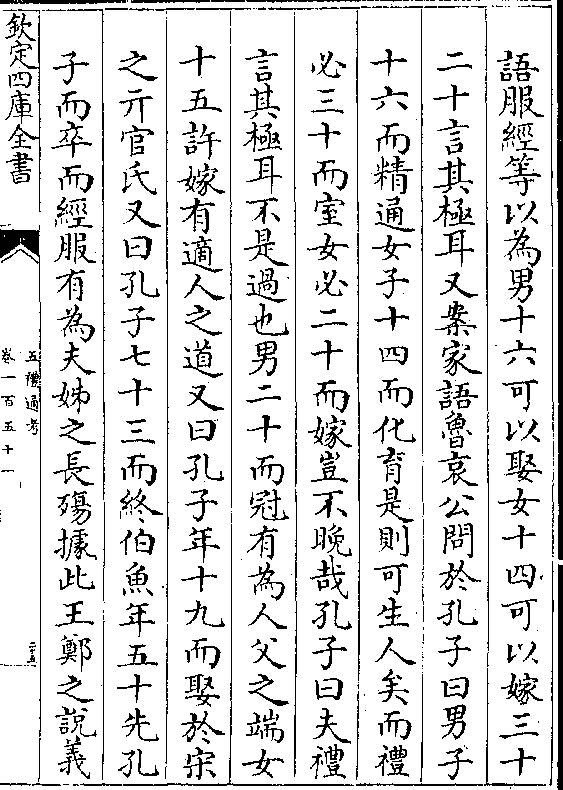 語服經等以為男十六可以娶女十四可以嫁三十
二十言其極耳又案家語魯哀公問於孔子曰男子
十六而精通女子十四而化育是則可生人矣而禮
必三十而室女必二十而嫁豈不晚哉孔子曰夫禮
言其極耳不是過也男二十而冠有為人父之端女
十五許嫁有適人之道又曰孔子年十九而娶於宋
之亓官氏又曰孔子七十三而終伯魚年五十先孔
子而卒而經服有為夫姊之長殤據此王鄭之說義
欽定四庫全書
五禮通考
卷一百五十一
二十五